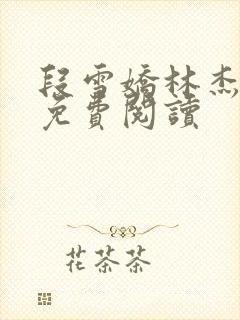 段雪嬌林杰
免費閱讀
花茶茶